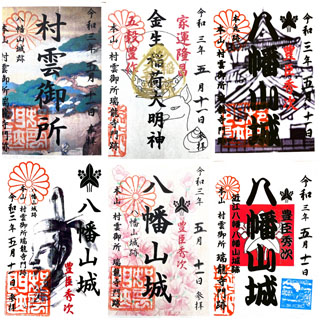 令和三年五月十一日参拝
村雲御所
八幡山城跡
本山 村雲御所瑞龍寺門跡
令和三年 五月 十一日 参拝
家運隆昌
金生稲荷大明神
五穀豊作
本山 村雲御所瑞龍寺門跡
令和三年 五月 十一日
豊臣秀次
八幡山城
本山 村雲御所瑞龍寺門跡
八幡山城
豊臣秀次
八幡山城跡
本山 村雲御所瑞龍寺門跡
令和三年 五月 十一日
令和三年 五月 十一日 参拝
八幡山城
豊臣秀次
八幡山城跡
本山 村雲御所瑞龍寺門跡
令和三年 五月 十一日
豊臣秀次
八幡山城
近江八幡八幡山城跡
本山 村雲御所瑞龍寺門跡